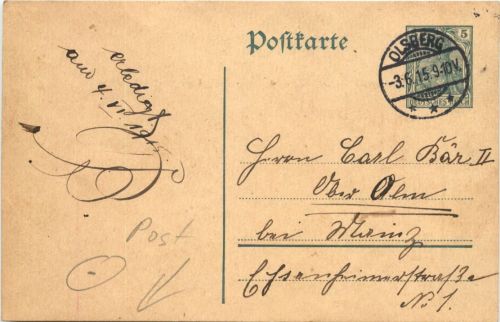 Postkarte
5
OLSBERG
-3.6.15.9-10V.
erledigt
am 4. VI. 1915.
Herrn Carl Bär II
Ober Olm
bei Mainz
Essenheimerstraße
No 1.
Post